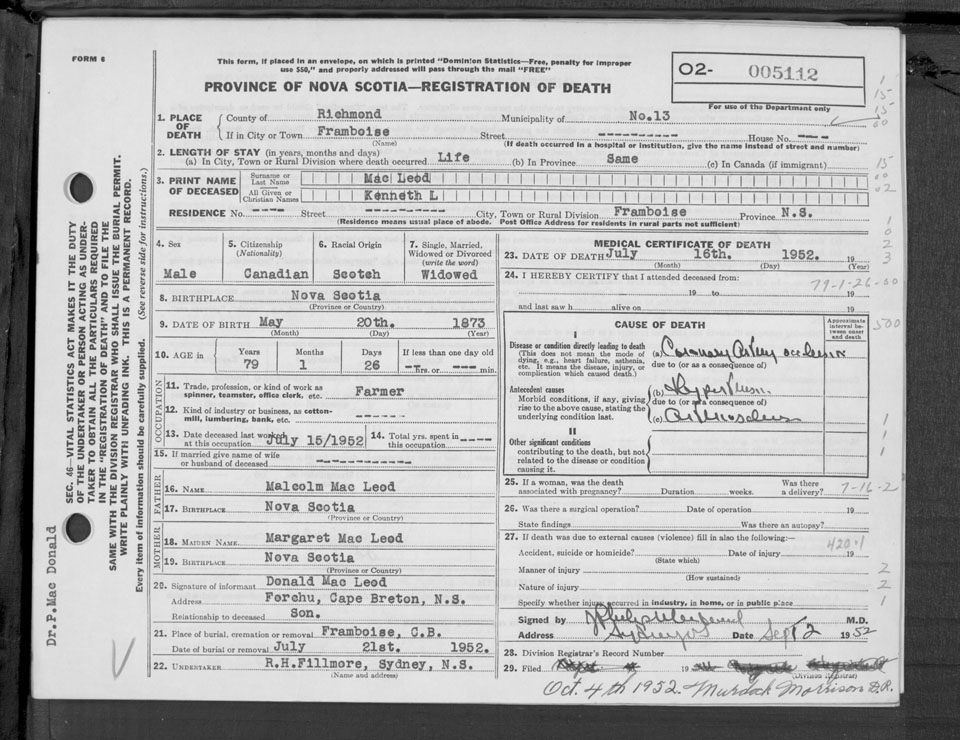 FORM 6
This form, if placed in an envelope, on which is printed "Dominion Statistics—Free, penalty for improper
use $50," and properly addressed will pass through the mail "FREE"
PROVINCE OF NOVA SCOTIA—REGISTRATION OF DEATH
O2- 005112
For use of the Department only
1. PLACE OF DEATH
County of Richmond Municipality of No.13
If in City or Town Framboise Street House No.
(Name) (If death occurred in a hospital or institution, give the name instead of street and number)
2. LENGTH OF STAY (in years, months and days)
(a) In City, Town or Rural Division where death occurred Life (b) In Province Same (c) In Canada (if immigrant)
3. PRINT NAME OF DECEASED
Surname or Last Name Mac Leod
All Given or Christian Names Kenneth L
RESIDENCE No. Street City, Town or Rural Division Framboise Province N.S.
(Residence means usual place of abode. Post Office Address for residents in rural parts not sufficient)
4. Sex Male
5. Citizenship (Nationality) Canadian
6. Racial Origin Scotch
7. Single, Married, Widowed or Divorced (write the word) Widowed
8. BIRTHPLACE Nova Scotia
(Province or Country)
9. DATE OF BIRTH May 20th. 1873
(Month) (Day) (Year)
10. AGE in Years Months Days If less than one day old
79 1 26 hrs. or min.
OCCUPATION
11. Trade, profession, or kind of work as
spinner, teamster, office clerk, etc. Farmer
12. Kind of industry or business, as cotton-
mill, lumbering, bank, etc.
13. Date deceased last worked
at this occupation July 15/1952
14. Total yrs. spent in
this occupation
15. If married give name of wife
or husband of deceased
FATHER
16. NAME Malcolm Mac Leod
17. BIRTHPLACE Nova Scotia
(Province or Country)
MOTHER
18. MAIDEN NAME Margaret Mac Leod
19. BIRTHPLACE Nova Scotia
(Province or Country)
20. Signature of informant Donald Mac Leod
Address Forchu, Cape Breton, N.S.
Relationship to deceased Son.
21. Place of burial, cremation or removal Framboise, C.B.
Date of burial or removal July 21st. 1952.
22. UNDERTAKER R.H.Fillmore, Sydney, N.S.
(Name and address)
MEDICAL CERTIFICATE OF DEATH
23. DATE OF DEATH July 16th. 1952. 19
(Month) (Day) (Year)
24. I HEREBY CERTIFY that I attended deceased from:
79-1-26-00
19 to 19
and last saw h alive on 19
CAUSE OF DEATH
Approximate interval between onset and death
I
Disease or condition directly leading to death
(This does not mean the mode of
dying, e.g., heart failure, asthenia,
etc. It means the disease, injury, or
complication which caused death.)
(a) Coronary Artery occlusion
due to (or as a consequence of)
Antecedent causes
Morbid conditions, if any, giving
rise to the above cause, stating the
underlying condition last.
(b)
due to (or as a consequence of)
(c)
II
Other significant conditions
contributing to the death, but not
related to the disease or condition
causing it.
25. If a woman, was the death
associated with pregnancy? Duration weeks. Was there a delivery? 7-16-2
26. Was there a surgical operation? Date of operation 19
State findings Was there an autopsy?
27. If death was due to external causes (violence) fill in also the following:—
420.1
Accident, suicide or homicide? Date of injury 19
(State which)
Manner of injury
(How sustained)
Nature of injury
Specify whether injury occurred in industry, in home, or in public place
Signed by M.D.
Address Sydney NS Date Sept 2 1952
28. Division Registrar's Record Number
29. Filed 19
(Division Registrar)
Oct. 4th 1952. Murdoch Morrison D.R.
SEC. 46—VITAL STATISTICS ACT MAKES IT THE DUTY
OF THE UNDERTAKER OR PERSON ACTING AS UNDER-
TAKER TO OBTAIN ALL THE PARTICULARS REQUIRED
IN THE "REGISTRATION OF DEATH" AND TO FILE THE
SAME WITH THE DIVISION REGISTRAR WHO SHALL ISSUE THE BURIAL PERMIT.
WRITE PLAINLY WITH UNFADING INK. THIS IS A PERMANENT RECORD.
Every item of information should be carefully supplied. (See reverse side for instructions.)
Dr.P.Mac Donald